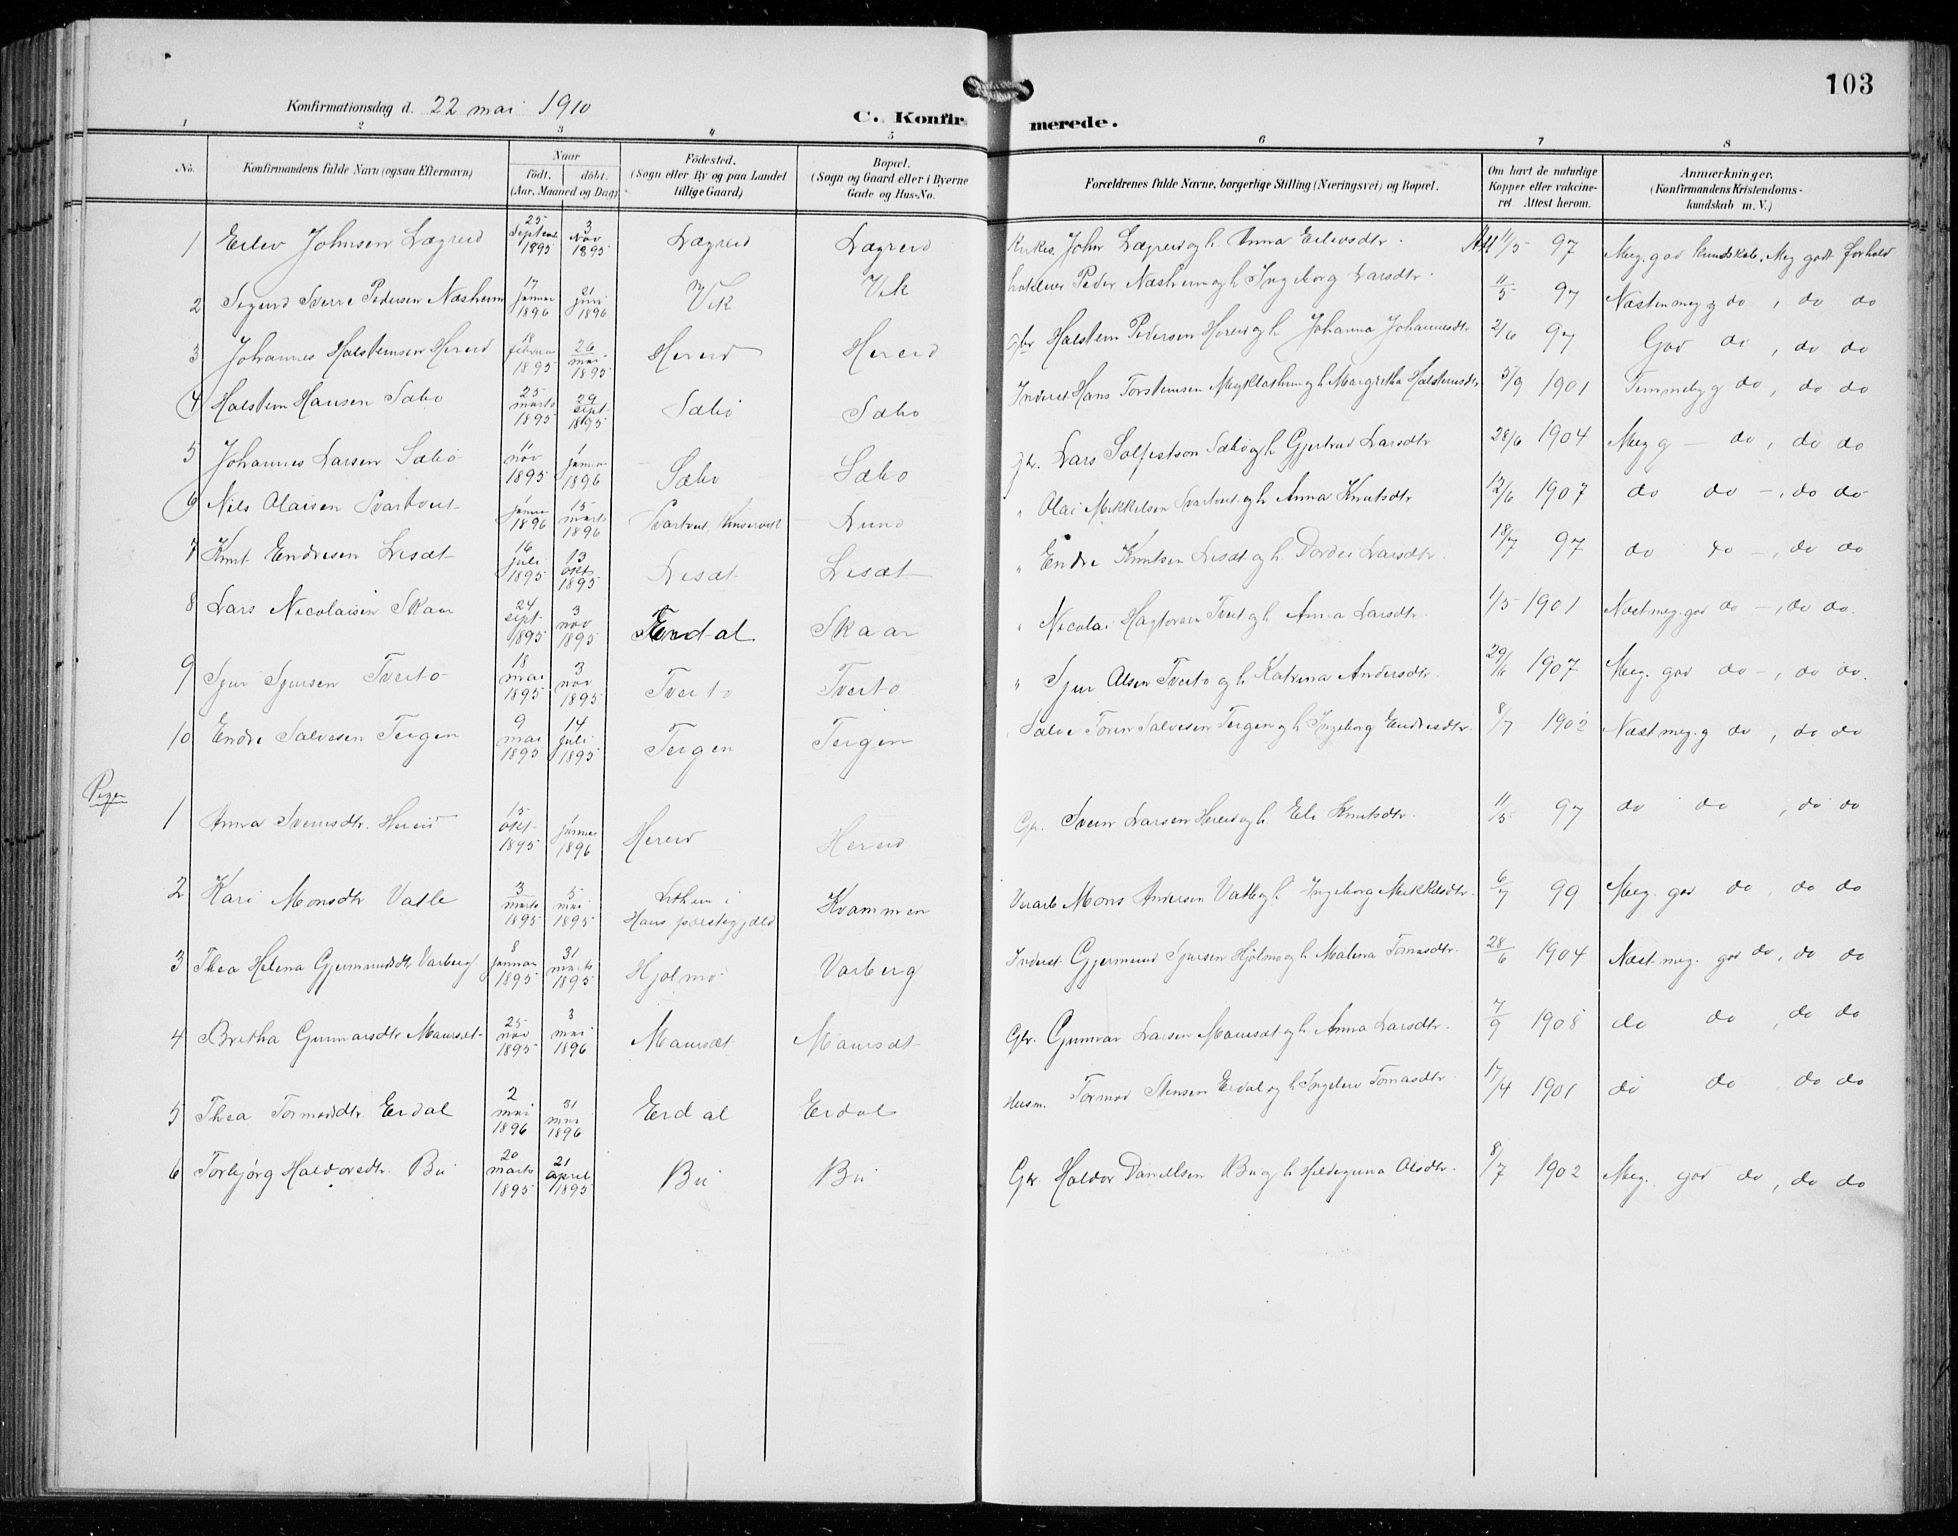 103
Konfirmationsdag d. 22 mai 1910
C. Konfirmerede.
1 2 3 4 5 6 7 8
No.
Konfirmandens fulde Navn (ogsaa Efternavn)
Naar
født. døbt.
(Aar, Maaned og Dag)
Fødested.
(Sogn eller By og paa Landet
tillige Gaard)
Bopæl.
(Sogn og Gaard eller i Byerne
Gade og Hus-No.
Forældrenes fulde Navne, borgerlige Stilling (Næringsvei) og Bopæl.
Om havt de naturlige
Kopper eller vakcine-
ret Attest herom.
Anmærkninger.
(Konfirmandens Kristendoms-
kundskab m. V.)
1 Eilev Johnsen Lægreid 25 septem 1895 3 nov 1895 Lægreid Lægreid Kirkes. John Lægreid og h. Anna Eilevsdtr. Att 11/5 97 Meg. god kundskab. Meg godt forhold
2 Sigurd Sverre Pedersen Næsheim 17 januar 1896 21 juni 1896 Vik Vik Peder Næsheim og h Ingeborg Larsdtr. 11/5 97 Næsten meg g do, do do
3 Johannes Halsteinsen Hereid 18 februar 1895 26 mai 1895 Hereid Hereid Gbr Halstein Pedersen Hereid og h Johanna Johannesdtr 2/6 97 God do, do do
4 Halstein Hansen Sæbø 25 marts 1895 29 sept. 1895 Sæbø Sæbø Inderst Hans Torsteinsen Myklathun og h Margretha Halsteinsdtr 5/9 1901 Temmelig g do, do do
5 Johannes Larsen Sæbø 11 nov 1895 1 januar 1896 Sæbø Sæbø Gbr. Lars Solfestson Sæbø og h Gjertrud Larsdtr 28/6 1904 Meg g - do, do do
6 Nils Olaisen Svartveit 1 januar 1896 15 marts 1896 Svartveit, Kinservik Lund " Olai Mikkelsen Svartveit og h Anna Knutsdtr 12/6 1907 do do -, do do
7 Knut Endresen Lisæt 16 juli 1895 13 okt 1895 Lisæt Lisæt " Endre Knutsen Lisæt og h Dordei Larsdtr. 18/7 97 do do -, do do
8 Lars Nicolaisen Skaar 24 sept. 1895 3 nov 1895 Erdal Skaar " Nicolai Hagtorsen Tveit og h Anna Larsdtr. 1/5 1901 Næst meg. god do -, do do.
9 Sjur Sjursen Tveito 18 mai 1895 3 nov 1895 Tveito Tveito " Sjur Olsen Tveito og h Katrina Andersdtr. 29/6 1907 Meg. god do -, do do.
10 Endre Salvesen Teigen 9 mai 1895 14 juli 1895 Teigen Teigen Salve Salvesen Teigen og h Ingeborg Endresdtr. 8/7 1902 Næst meg. g do, do do
Piger
1 Anna Sveinsdtr. Hereid 15 okt 1895 1 januar 1896 Hereid Hereid Gbr. Svein Larsen Hereid og h Eli Knutsdtr. 11/5 97 do do, do do
2 Kari Monsdtr Vatle 3 marts 1895 5 mai 1895 i Haus præstegjæld Kvammen Mons Andersen Vatle og h Ingeborg Mikkelsdtr. 6/7 99 Meg. god do, do do
3 Thea Helena Gjermundsdtr Varberg 8 januar 1895 31 marts 1895 Hjølmo Varberg Inderst. Gjermund Sjursen Hjølmo og h Malena Tomasdtr. 28/6 1904 Næst meg. god do, do do
4 Bretha Gunnarsdtr Maursæt 25 nov 1895 3 mai 1896 Maursæt Maursæt Gbr. Gunnar Larsen Maursæt og h Anna Larsdtr. 7/9 1908 do do, do do
5 Thea Tormodsdtr. Erdal 2 mai 1896 31 mai 1896 Erdal Erdal Husm. Tormod Stensen Erdal og h Ingeleiv Tomasdtr. 17/4 1901 do do, do do
6 Torbjørg Haldorsdtr. Bu 20 marts 1895 21 april 1895 Bu Bu Gbr. Haldor Daniellsen Bu og h Hildegunna Olsdtr. 8/7 1902 Meg. god do, do do